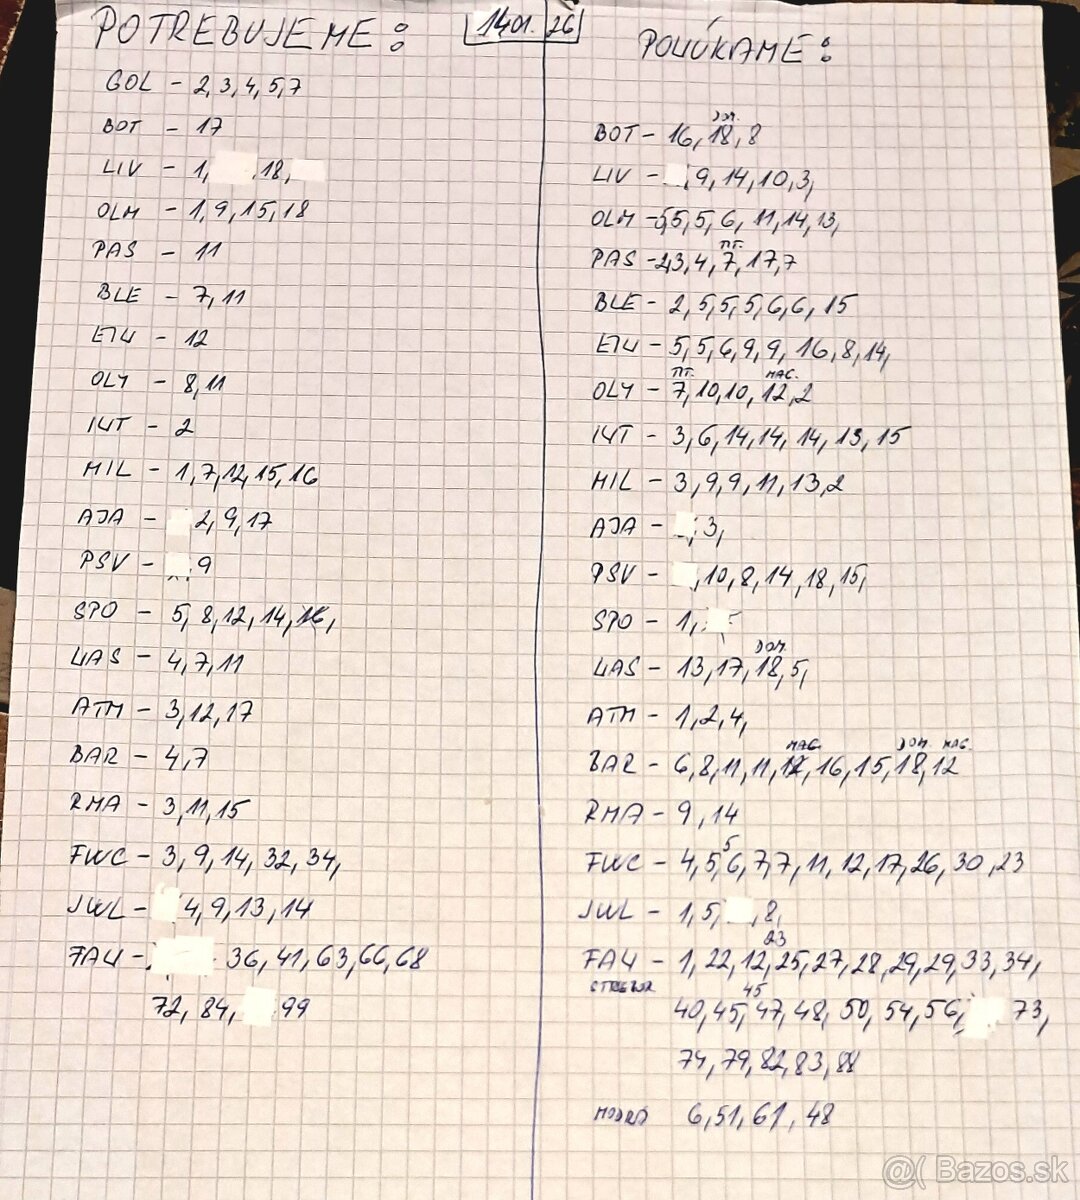 POTREBUJEME:
14.01. 26
GOL - 2,3,4,5,7
BOT - 17
LIV - 1, ,18,
OLM - 1,9,15,18
PAS - 11
BLE - 7,11
ETU - 12
OLY - 8,11
INT - 2
MIL - 1,7,12,15,16
AJA - 2,9,17
PSV - ,9
SPO - 5,8,12,14,16,
UAS - 4,7,11
ATM - 3,12,17
BAR - 4,7
RMA - 3,11,15
FWC - 3,9,14,32,34,
JWL - 4,9,13,14
FAN - 36,41,63,66,68
72,84, 99
PONÚKAME:
DOM.
BOT - 16,18,8
LIV - ,9,14,10,3,
OLM - 5,5,5,6,11,14,13,
ПТ.
PAS - 2,3,4,7,17,7
BLE - 2,5,5,5,6,6,15
ETU - 5,5,6,9,9,16,8,14,
ПТ. MAG.
OLY - 7,10,10,12,2
INT - 3,6,14,14,14,13,15
MIL - 3,9,9,11,13,2
AJA - ,3,
PSV - ,10,8,14,18,15,
SPO - 1,
DOM.
UAS - 13,17,18,5,
ATM - 1,2,4,
MAG. DOM. MAG.
BAR - 6,8,11,11,12,16,15,18,12
RMA - 9,14
5
FWC - 4,5,6,7,7,11,12,17,26,30,23
JWL - 1,5, ,8,
23
FAN - 1,22,12,25,27,28,29,29,33,34,
45
40,45,47,48,50,54,56, 73,
74,79,82,83,88
MODRÉ 6,51,61,48
@( Bazos.sk